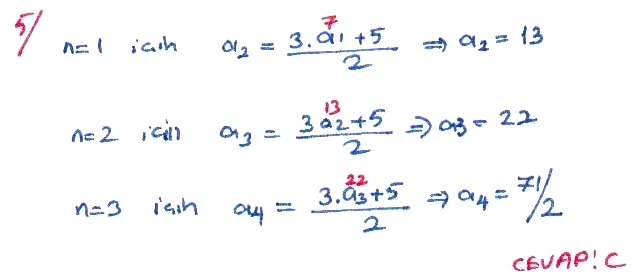 5/ n=1 için a₂ = (3.a₁+5)/2 ⇒ a₂ = 13
7
n=2 için a₃ = (3a₂+5)/2 ⇒ a₃ = 22
13
n=3 için a₄ = (3.a₃+5)/2 ⇒ a₄ = 71/2
22
CEVAP: C